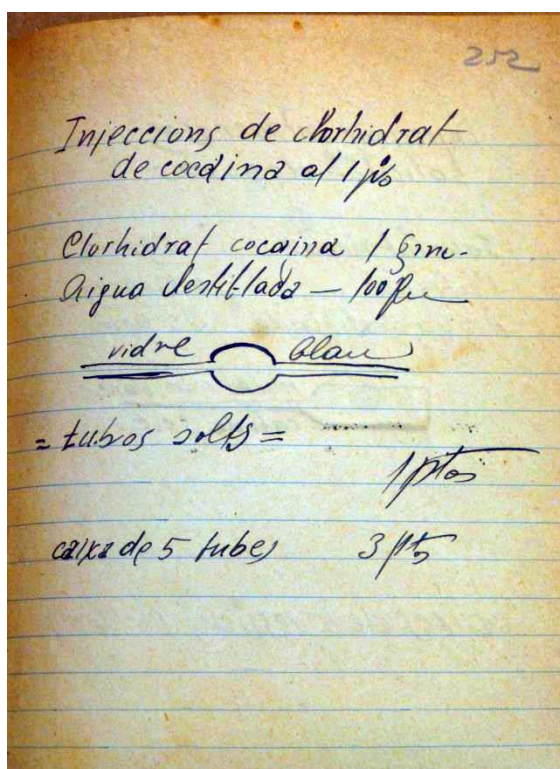 252
Injeccions de clorhidrat
de cocaina al 1 p%
Clorhidrat cocaina 1 grm.
Aigua destil-lada — 100
vidre blau
= tubos solts =
1 ptas
caixa de 5 tubes 3 pts